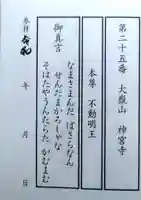 第二十五番 神宮寺
本尊 不動明王
御真言
なまさまんだ ばさらなん
せんだまかろしゃな
そはたやうんたらた かむまむ
参拝 令和 年 月 日